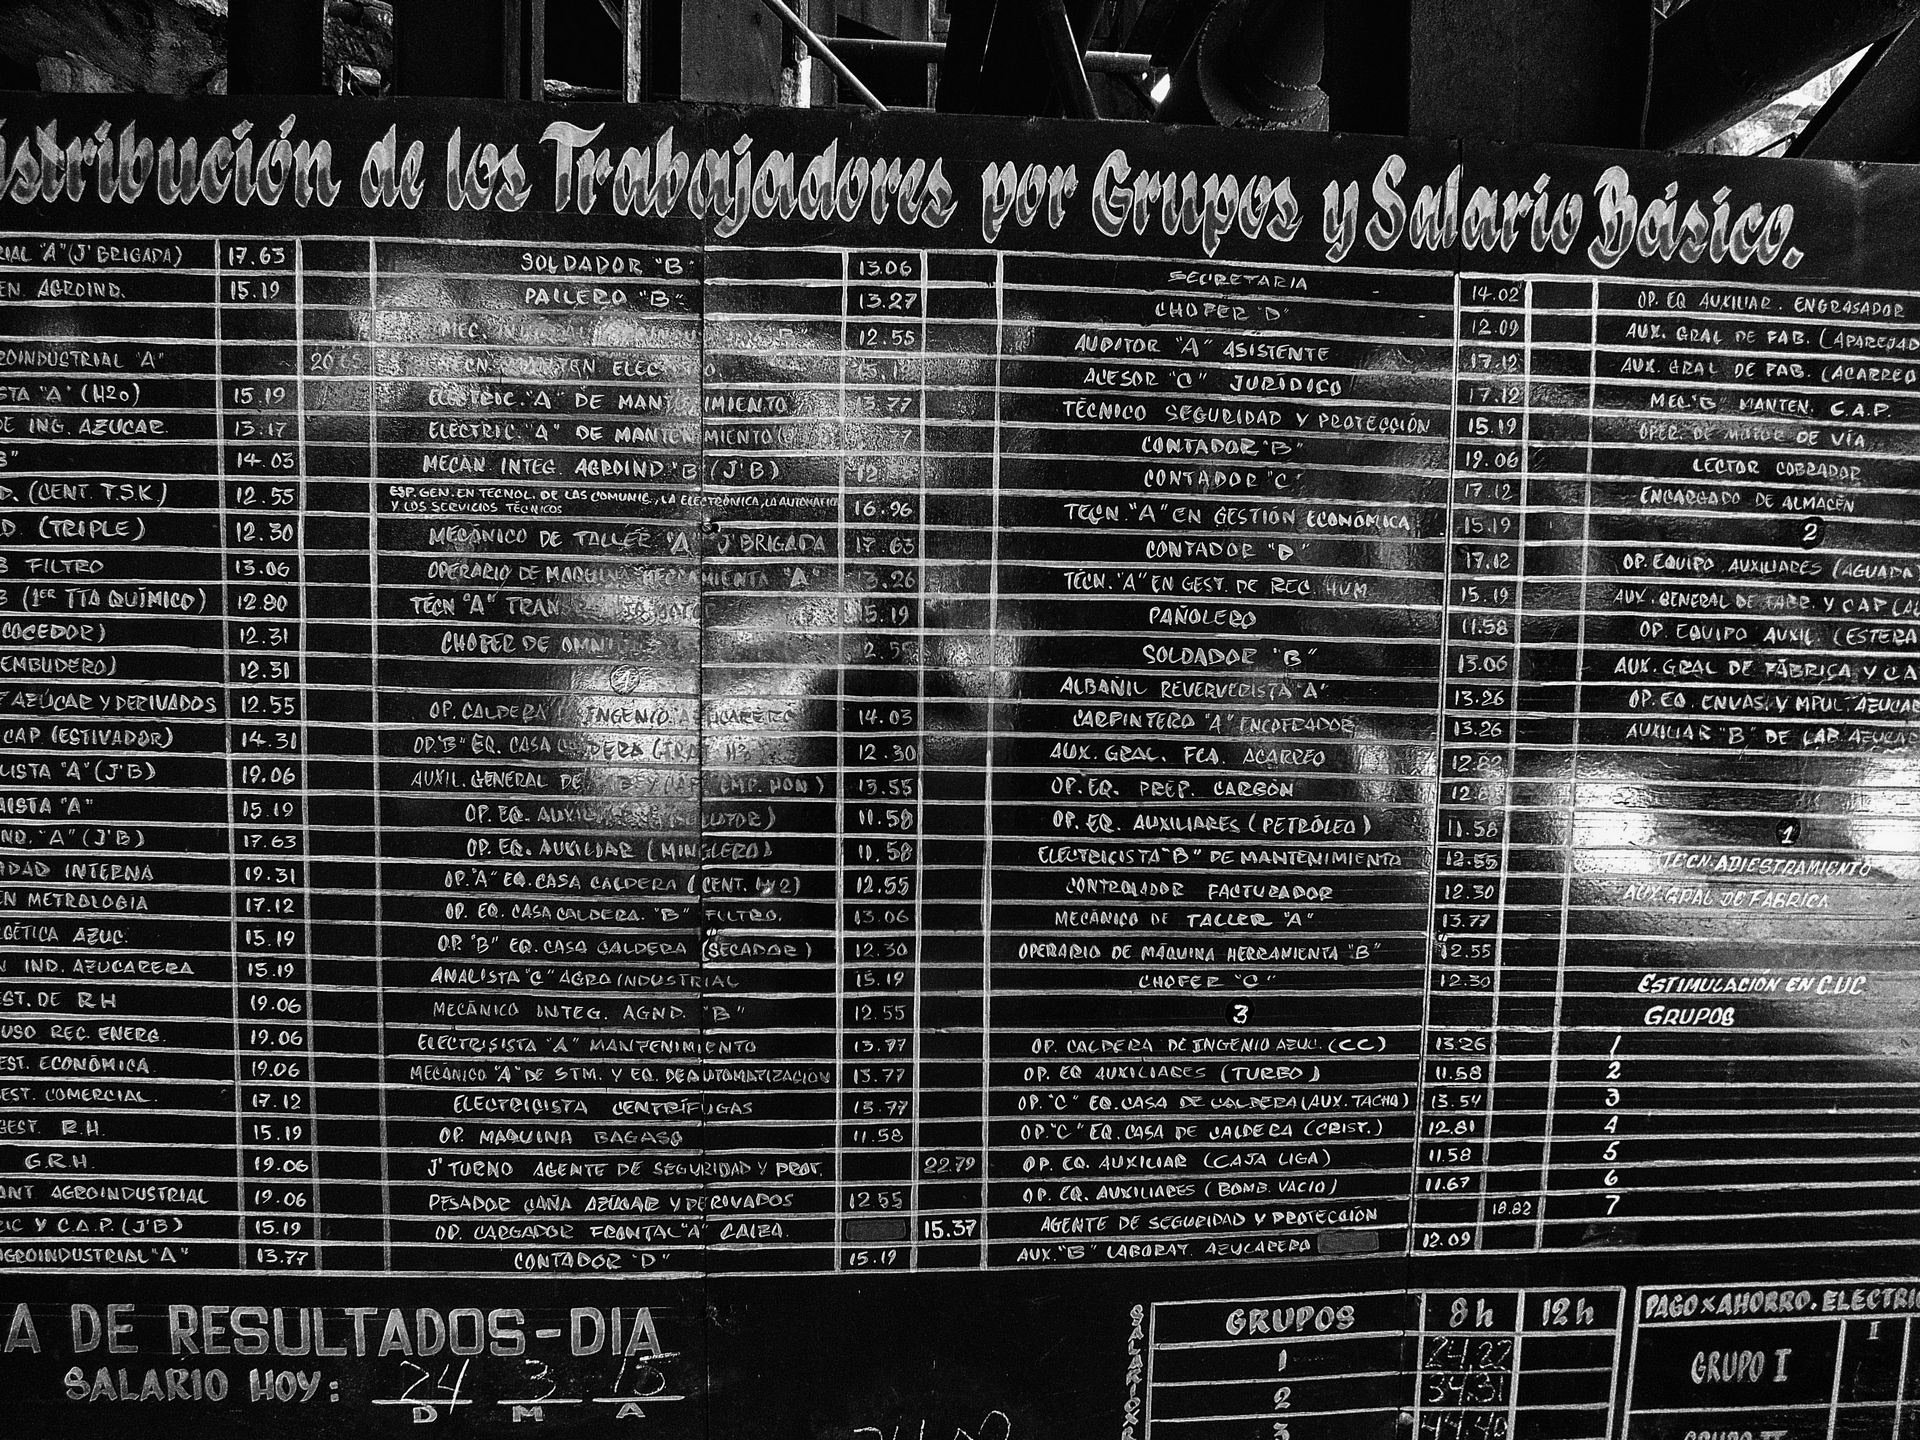 istribución de los Trabajadores por Grupos y Salario Básico.
RIAL "A" (J' BRIGADA) 17.63
EN. AGROIND. 15.19
ROINDUSTRIAL "A"
STA "A" (H2O) 15.19
DE ING. AZUCAR. 13.17
B" 14.03
D. (CENT. T.S.K.) 12.55
D (TRIPLE) 12.30
B FILTRO 13.06
B (1ER TTA QUÍMICO) 12.80
COCEDOR) 12.31
EMBUDERO) 12.31
E AZÚCAR Y DERIVADOS 12.55
CAP. (ESTIVADOR) 14.31
LISTA "A" (J'B) 19.06
AISTA "A" 15.19
IND. "A" (J'B) 17.63
IDAD INTERNA 19.31
EN METROLOGIA 17.12
GÉTICA AZUC. 15.19
N IND. AZUCARERA 15.19
EST. DE R.H 19.06
USO REC. ENERG. 19.06
EST. ECONÓMICA. 19.06
EST. COMERCIAL. 17.12
GEST. R.H. 15.19
G.R.H. 19.06
ANT AGROINDUSTRIAL 19.06
RIC Y C.A.P. (J'B) 15.19
AGROINDUSTRIAL "A" 13.77
SOLDADOR "B" 13.06
PAILERO "B" 13.27
12.55
ELECTRIC. "A" DE MANTENIMIENTO 13.77
ELÉCTRIC. "A" DE MANTENIMIENTO
MECAN INTEG. AGROIND. "B" (J'B)
ESP. GEN. EN TECNOL. DE LAS COMUNIC., LA ELECTRÓNICA, LA AUTOMATIC
Y LOS SERVICIOS TÉCNICOS 16.96
MECÁNICO DE TALLER "A" J' BRIGADA 17.63
OPERARIO DE MAQUINA HERRAMIENTA "A"
TÉCN "A" TRAN 15.19
CHOFER DE OMNI
4
OP. CALDERA INGENIO AZUCARERO 14.03
OP. "B" EQ. CASA CALDERA 12.30
AUXIL. GENERAL DE 13.55
OP. EQ. AUXIL 11.58
OP. EQ. AUXILIAR (MINGLERO) 11.58
OP. "A" EQ. CASA CALDERA (CENT. 1 y 2) 12.55
OP. EQ. CASA CALDERA. "B" FILTRO. 13.06
OP. "B" EQ. CASA CALDERA (SECADOR) 12.30
ANALISTA "C" AGROINDUSTRIAL 15.19
MECÁNICO INTEG. AGND. "B" 12.55
ELECTRISISTA "A" MANTENIMIENTO 13.77
MECANICO "A" DE STM. Y EQ. DE AUTOMATIZACIÓN 13.77
ELECTRICISTA CENTRÍFUGAS 13.77
OP. MAQUINA BAGASO 11.58
J' TURNO AGENTE DE SEGURIDAD Y PROT. 22.79
PESADOR CAÑA AZÚCAR Y DEROVADOS 12.55
OP. CARGADOR FRONTAL "A" CALZA. 15.37
CONTADOR "D" 15.19
SECRETARIA 14.02
CHOFER "D" 12.09
AUDITOR "A" ASISTENTE 17.12
ACESOR "C" JURÍDICO 17.12
TÉCNICO SEGURIDAD Y PROTECCIÓN 15.19
CONTADOR "B" 19.06
CONTADOR "C" 17.12
TECN. "A" EN GESTIÓN ECONÓMICA 15.19
CONTADOR "D" 17.12
TÉCN. "A" EN GEST. DE REC. HUM. 15.19
PAÑOLERO 11.58
SOLDADOR "B" 13.06
ALBAÑIL REVERVERISTA "A" 13.26
CARPINTERO "A" ENCOFRADOR 13.26
AUX. GRAL. FCA. ACARREO
OP. EQ. PREP. CARBÓN
OP. EQ. AUXILIARES (PETRÓLEO) 11.58
ELECTRICISTA "B" DE MANTENIMIENTO 12.55
CONTROLADOR FACTURADOR 12.30
MECÁNICO DE TALLER "A" 13.77
OPERARIO DE MÁQUINA HERRAMIENTA "B" 12.55
CHOFER "C" 12.30
3
OP. CALDERA DE INGENIO AZUC. (CC) 13.26
OP. EQ AUXILIARES (TURBO) 11.58
OP. "C" EQ. CASA DE CALDERA (AUX. TACHO) 13.54
OP. "C" EQ. CASA DE CALDERA (CRIST.) 12.81
OP. EQ. AUXILIAR (CAJA LIGA) 11.58
OP. EQ. AUXILIARES (BOMB. VACIO) 11.67
AGENTE DE SEGURIDAD Y PROTECCIÓN 18.82
AUX. "B" LABORAT. AZUCARERO 12.09
OP. EQ AUXILIAR. ENGRASADOR
AUX. GRAL DE FAB. (APAREJAD
AUX. GRAL DE FAB. (ACARREO
MEC. "B" MANTEN. C.A.P.
OPER. DE MOTOR DE VÍA
LECTOR COBRADOR
ENCARGADO DE ALMACÉN
2
OP. EQUIPO AUXILIARES (AGUADA)
AUX. GENERAL DE FABR. Y CAP
OP. EQUIPO AUXIL. (ESTERA
AUX. GRAL DE FÁBRICA Y CA
OP. EQ. ENVAS. Y MPUL. AZUCAR
AUXILIAR "B" DE LAB. AZUCAR
1
TECN. ADIESTRAMIENTO
AUX. GRAL DE FÁBRICA
ESTIMULACIÓN EN C.U.C
GRUPOS
1
2
3
4
5
6
7
A DE RESULTADOS-DIA
SALARIO HOY: 24 3 15
D M A
SALARIO X
GRUPOS 8h 12h
1 24.22
2 34.31
3 44.40
PAGO X AHORRO. ELECTRIC
I
GRUPO I
GRUPO II